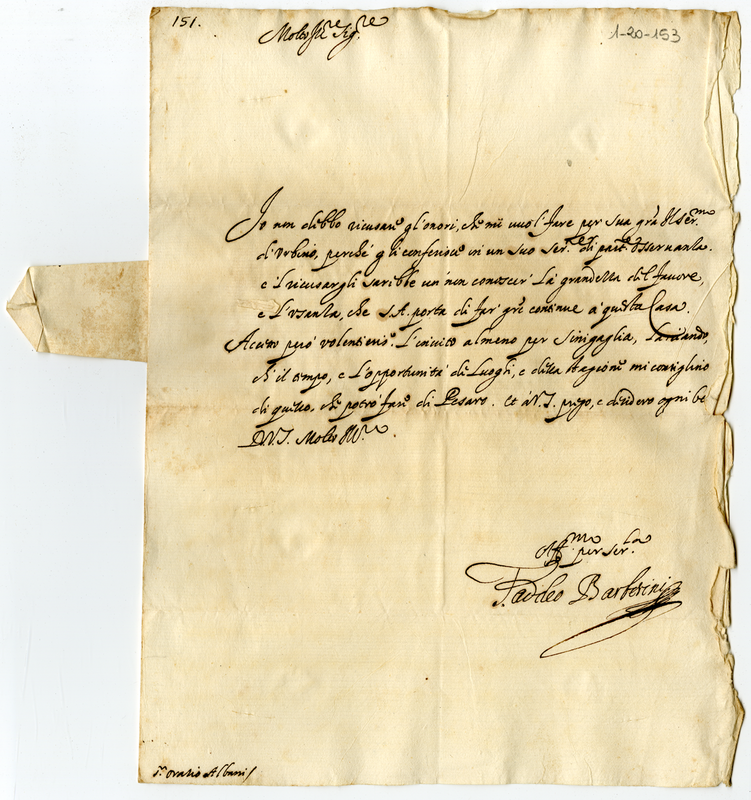 151.
1-20-153
Molto Ill.re Sig.re
Io non debbo ricusare gl'onori, che mi vuol fare per sua gra Il Ser.mo
di Urbino, perché gli conferisce in un suo ser.re di part.e osservanza.
e 'l ricusargli sarebbe un non conoscer la grandezza del favore,
e l'usanza, che S.A. porta di far gre continue a questa Casa.
Accetto però volentieri l'invito almeno per Sinigaglia, lasciando,
ch'il tempo, e l'opportunità de Luoghi, e della stagione mi consiglino
di quello, che potrò fare di Pesaro. Et à V.S. prego, e desidero ogni be
D.V.S. Molto Ill.re.
Aff.mo per ser.la
Taddeo Barberini
S.r Oratio Albani